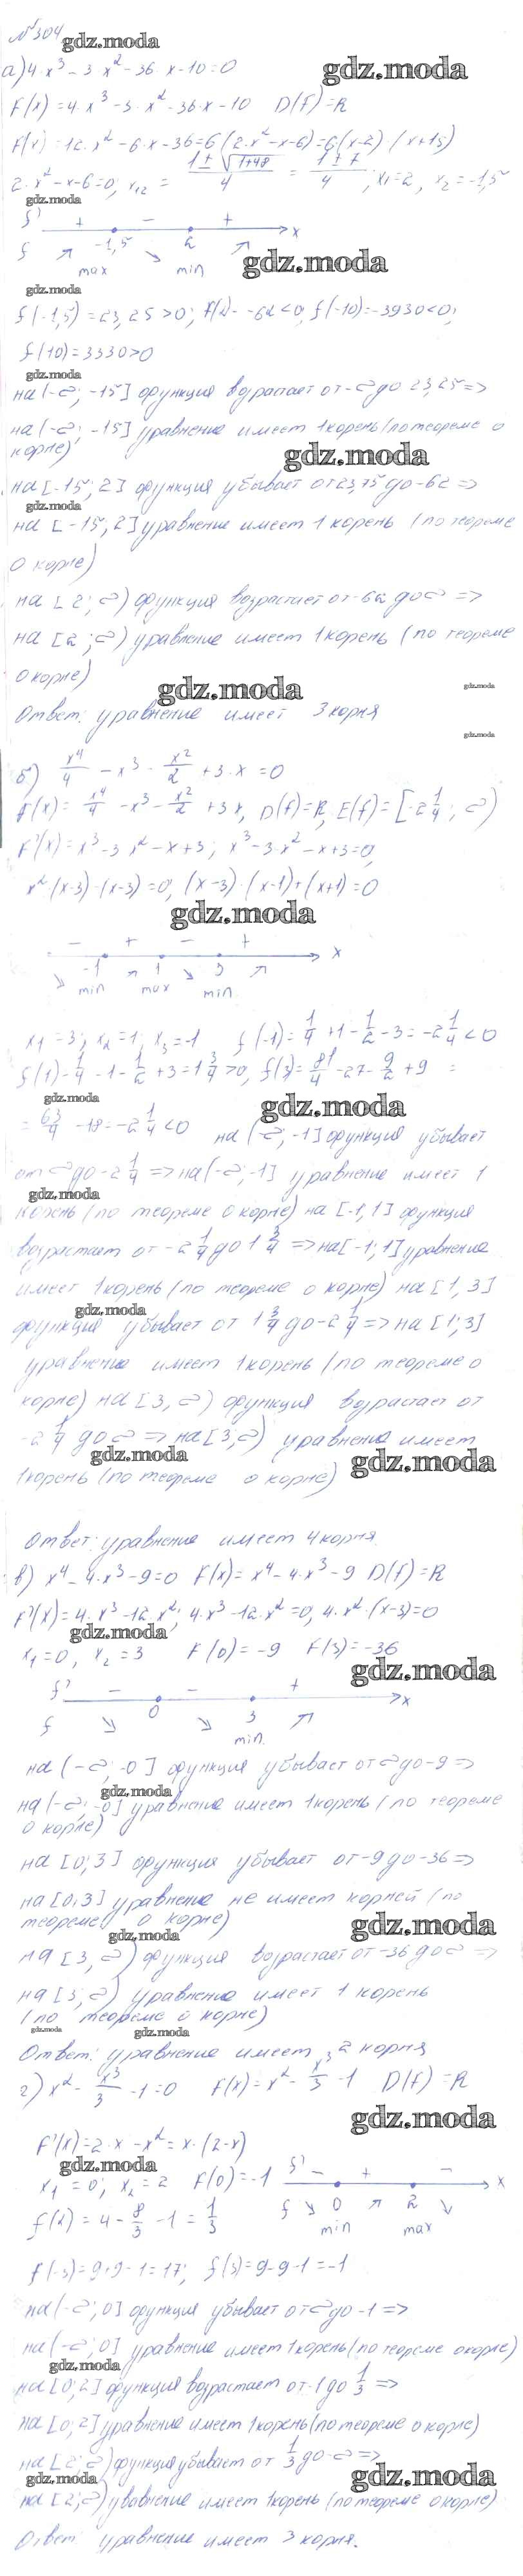 №304
gdz.moda
а) 4·x³-3·x²-36·x-10=0
gdz.moda
f(x)=4·x³-3·x²-36·x-10 D(f)=R
f'(x)=12·x²-6·x-36=6(2·x²-x-6)=6·(x-2)·(x+1,5)
2·x²-x-6=0; x₁₂ = (1±√(1+48))/4 = (1±7)/4; x₁=2, x₂=-1,5
gdz.moda
f' + - +
-1,5 2 x
f ↗ max ↘ min ↗
gdz.moda
gdz.moda
f(-1,5)=23,25>0; f(2)=-62<0; f(-10)=-3930<0;
f(10)=3330>0
gdz.moda
на (-∞; -15] функция возрастает от -∞ до 23,25 =>
на (-∞; -15] уравнение имеет 1 корень (по теореме о
корне)
gdz.moda
на [-15; 2] функция убывает от 23,75 до -62 =>
gdz.moda
на [-15; 2] уравнение имеет 1 корень (по теореме
о корне)
на [2; ∞) функция возрастает от -62 до ∞ =>
на [2; ∞) уравнение имеет 1 корень (по теореме
о корне)
gdz.moda
gdz.moda
Ответ: уравнение имеет 3 корня
gdz.moda
б) x⁴/4 - x³ - x²/2 + 3·x = 0
f(x) = x⁴/4 - x³ - x²/2 + 3x, D(f)=R, E(f)=[-2 1/4; ∞)
f'(x)=x³-3x²-x+3; x³-3·x²-x+3=0,
x²·(x-3)-(x-3)=0, (x-3)·(x-1)+(x+1)=0
gdz.moda
- + - +
-1 1 3 x
↘ min ↗ max ↘ min ↗
x₁=3; x₂=1; x₃=-1 f(-1)=1/4+1-1/2-3=-2 1/4<0
f(1)=1/4-1-1/2+3=1 3/4>0, f(3)=81/4-27-9/2+9 =
gdz.moda
gdz.moda
= 63/4 -18=-2 1/4<0 на (-∞; -1] функция убывает
от ∞ до -2 1/4 => на (-∞; -1] уравнение имеет 1
gdz.moda
корень (по теореме о корне) на [-1, 1] функция
возрастает от -2 1/4 до 1 3/4 => на [-1; 1] уравнение
имеет 1 корень (по теореме о корне) на [1, 3]
gdz.moda
функция убывает от 1 3/4 до -2 1/4 => на [1; 3]
уравнение имеет 1 корень (по теореме о
корне) на [3, ∞) функция возрастает от
-2 1/4 до ∞ => на [3; ∞) уравнение имеет
gdz.moda
gdz.moda
1 корень (по теореме о корне)
Ответ: уравнение имеет 4 корня
в) x⁴-4·x³-9=0 f(x)=x⁴-4·x³-9 D(f)=R
f'(x)=4·x³-12·x²; 4·x³-12·x²=0, 4·x²·(x-3)=0
gdz.moda
x₁=0, x₂=3 f(0)=-9 f(3)=-36
gdz.moda
f' - - +
0 3 x
f ↘ ↘ min ↗
на (-∞; 0] функция убывает от ∞ до -9 =>
gdz.moda
на (-∞; 0] уравнение имеет 1 корень (по теореме
о корне)
на [0; 3] функция убывает от -9 до -36 =>
на [0; 3] уравнение не имеет корней (по
теореме о корне)
gdz.moda
gdz.moda
на [3, ∞) функция возрастает от -36 до ∞ =>
на [3; ∞) уравнение имеет 1 корень
(по теореме о корне)
gdz.moda
gdz.moda
Ответ: уравнение имеет 2 корня
г) x²-x³/3-1=0 f(x)=x²-x³/3-1 D(f)=R
gdz.moda
f'(x)=2·x-x²=x·(2-x)
gdz.moda
x₁=0; x₂=2 f(0)=-1 f' - + -
0 2 x
f(2)=4-8/3-1=1/3 f ↘ min ↗ max ↘
f(-3)=9+9-1=17; f(3)=9-9-1=-1
на (-∞; 0] функция убывает от ∞ до -1 =>
на (-∞; 0] уравнение имеет 1 корень (по теореме о корне)
gdz.moda
на [0; 2] функция возрастает от -1 до 1/3 =>
на [0; 2] уравнение имеет 1 корень (по теореме о корне)
на [2; ∞) функция убывает от 1/3 до -∞ =>
gdz.moda
gdz.moda
на [2; ∞) уравнение имеет 1 корень (по теореме о корне)
Ответ: уравнение имеет 3 корня.